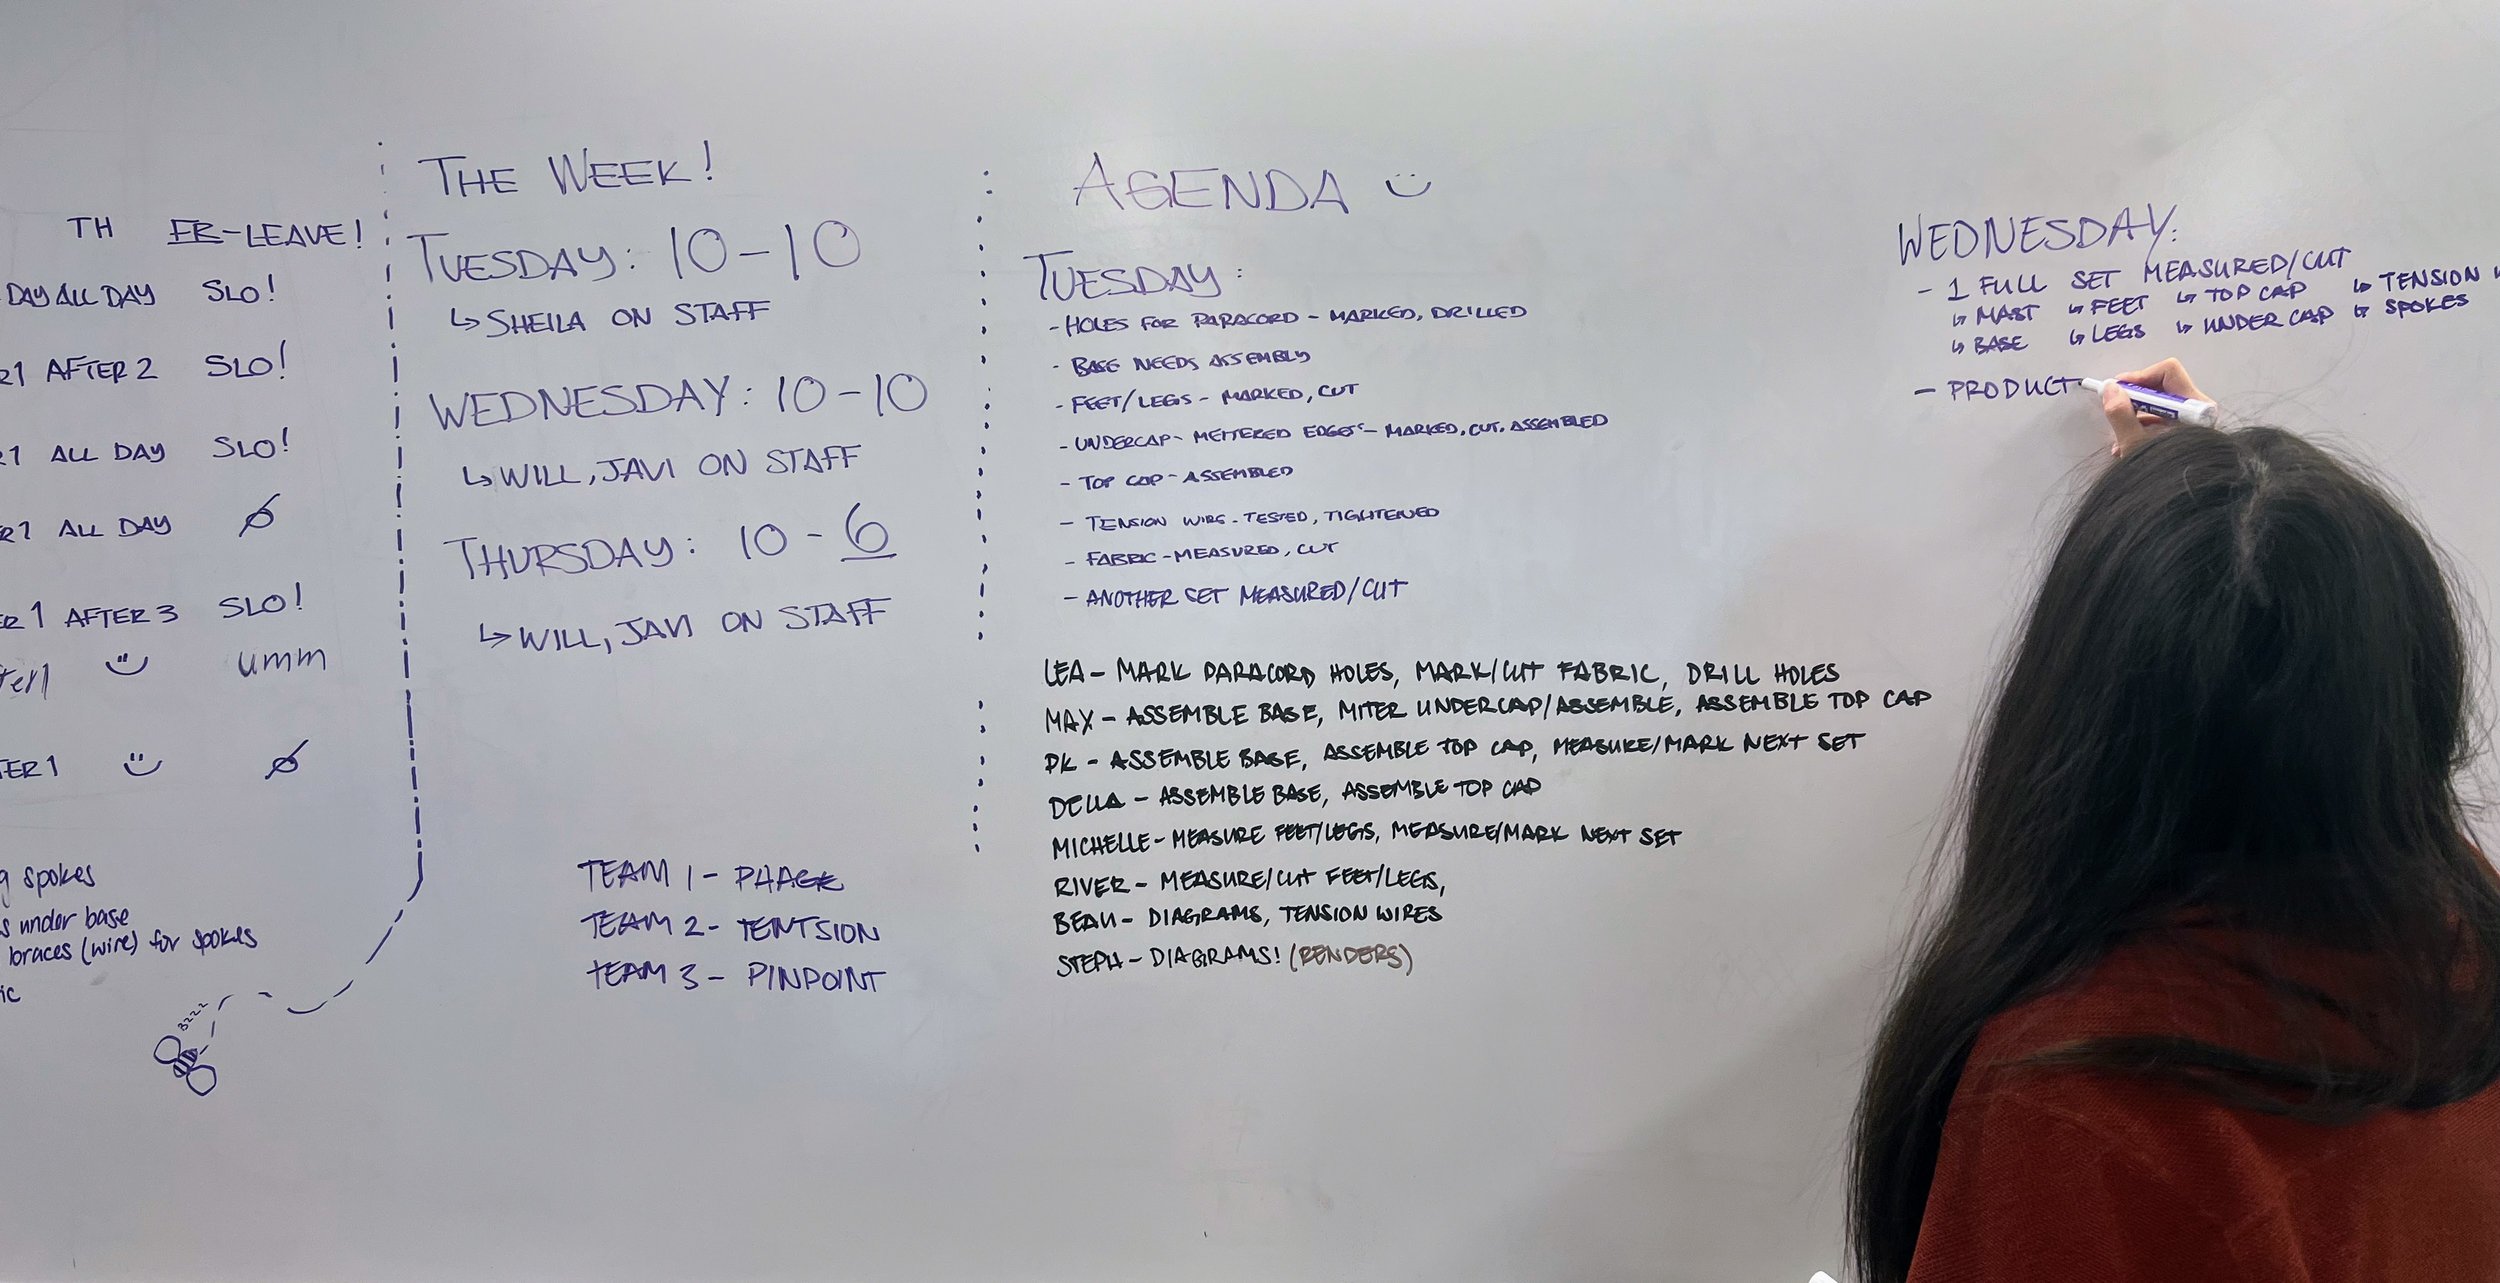 TH FR-LEAVE!
DAY ALL DAY SLO!
R1 AFTER 2 SLO!
1 ALL DAY SLO!
R1 ALL DAY
ER 1 AFTER 3 SLO!
ter1 umm
TER 1
g spokes
s under base
braces (wire) for spokes
ic
BZZZ
THE WEEK!
TUESDAY: 10-10
↳ SHEILA ON STAFF
WEDNESDAY: 10-10
↳ WILL, JAVI ON STAFF
THURSDAY: 10-6
↳ WILL, JAVI ON STAFF
TEAM 1 - PHAGE
TEAM 2 - TENTSION
TEAM 3 - PINPOINT
AGENDA
TUESDAY:
- HOLES FOR PARACORD - MARKED, DRILLED
- BASE NEEDS ASSEMBLY
- FEET/LEGS - MARKED, CUT
- UNDERCAP - MEITERED EDGES - MARKED, CUT, ASSEMBLED
- TOP CAP - ASSEMBLED
- TENSION WIRE - TESTED, TIGHTENED
- FABRIC - MEASURED, CUT
- ANOTHER SET MEASURED/CUT
LEA - MARK PARACORD HOLES, MARK/CUT FABRIC, DRILL HOLES
MAX - ASSEMBLE BASE, MITER UNDERCAP/ASSEMBLE, ASSEMBLE TOP CAP
PK - ASSEMBLE BASE, ASSEMBLE TOP CAP, MEASURE/MARK NEXT SET
DELLA - ASSEMBLE BASE, ASSEMBLE TOP CAP
MICHELLE - MEASURE FEET/LEGS, MEASURE/MARK NEXT SET
RIVER - MEASURE/CUT FEET/LEGS,
BEAU - DIAGRAMS, TENSION WIRES
STEPH - DIAGRAMS! (RENDERS)
WEDNESDAY:
- 1 FULL SET MEASURED/CUT
↳ MAST ↳ FEET ↳ TOP CAP ↳ TENSION
↳ BASE ↳ LEGS ↳ UNDER CAP ↳ SPOKES
- PRODUCT